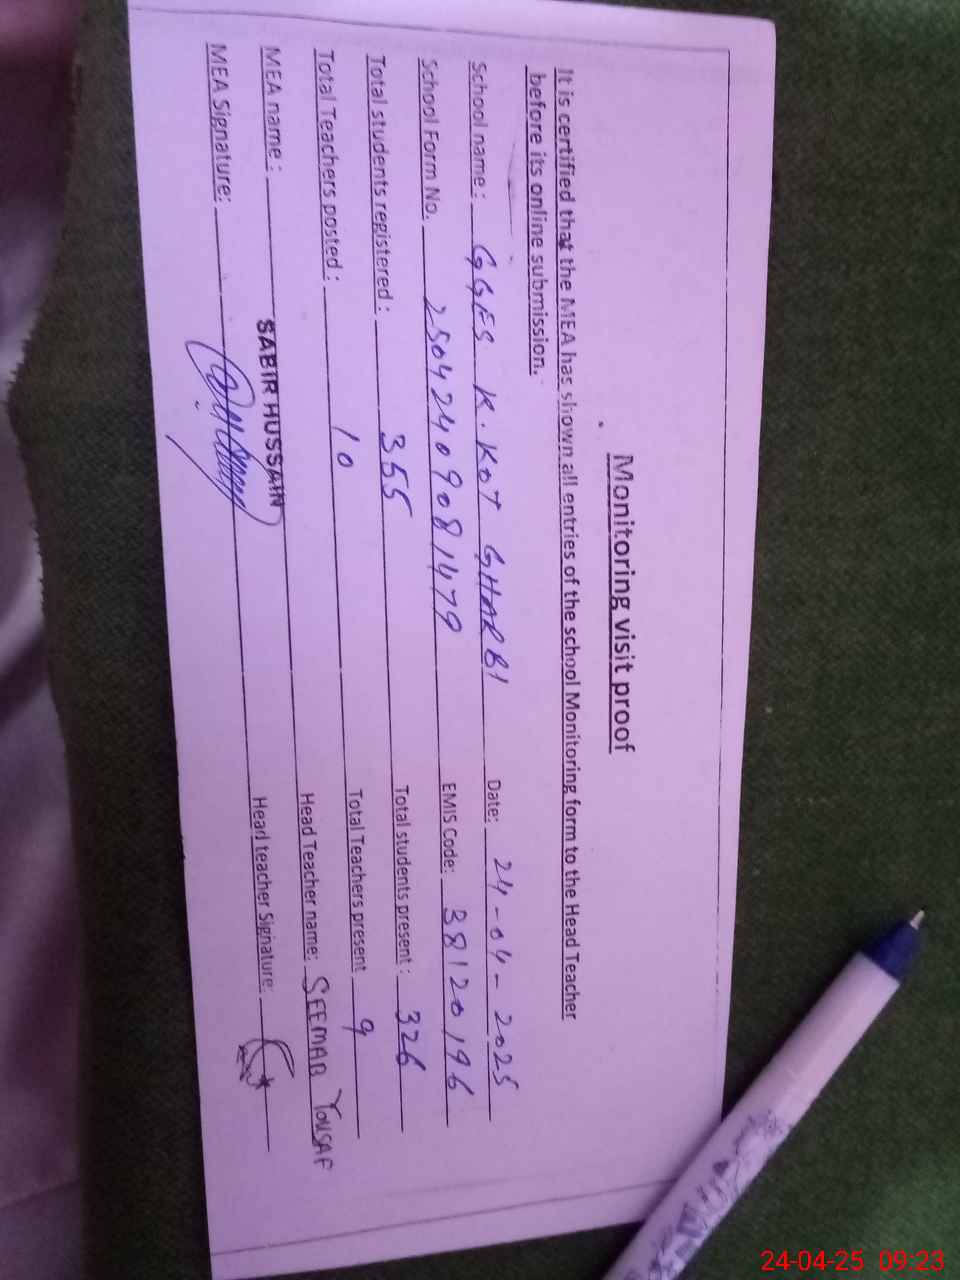 Monitoring visit proof
It is certified that the MEA has shown all entries of the school Monitoring form to the Head Teacher
before its online submission.
School name : GGES K.KOT GHARBI Date: 24-04-2025
School Form No. 25042409081479 EMIS Code: 38120196
Total students registered : 355 Total students present : 326
Total Teachers posted : 10 Total Teachers present 9
MEA name : SABIR HUSSAIN Head Teacher name: SEEMAB YOUSAF
MEA Signature: Head teacher Signature:
24-04-25 09:23